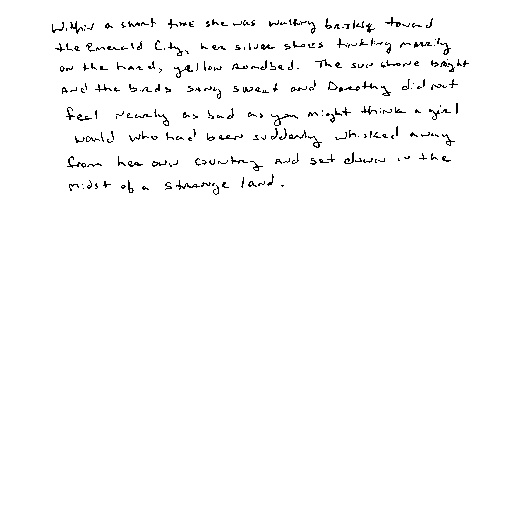 Within a short time she was walking briskly toward
the Emerald City, her silver shoes tinkling merrily
on the hard, yellow roadbed. The sun shone bright
and the birds sang sweet and Dorothy did not
feel nearly as bad as you might think a girl
would who had been suddenly whisked away
from her own country and set down in the
midst of a strange land.